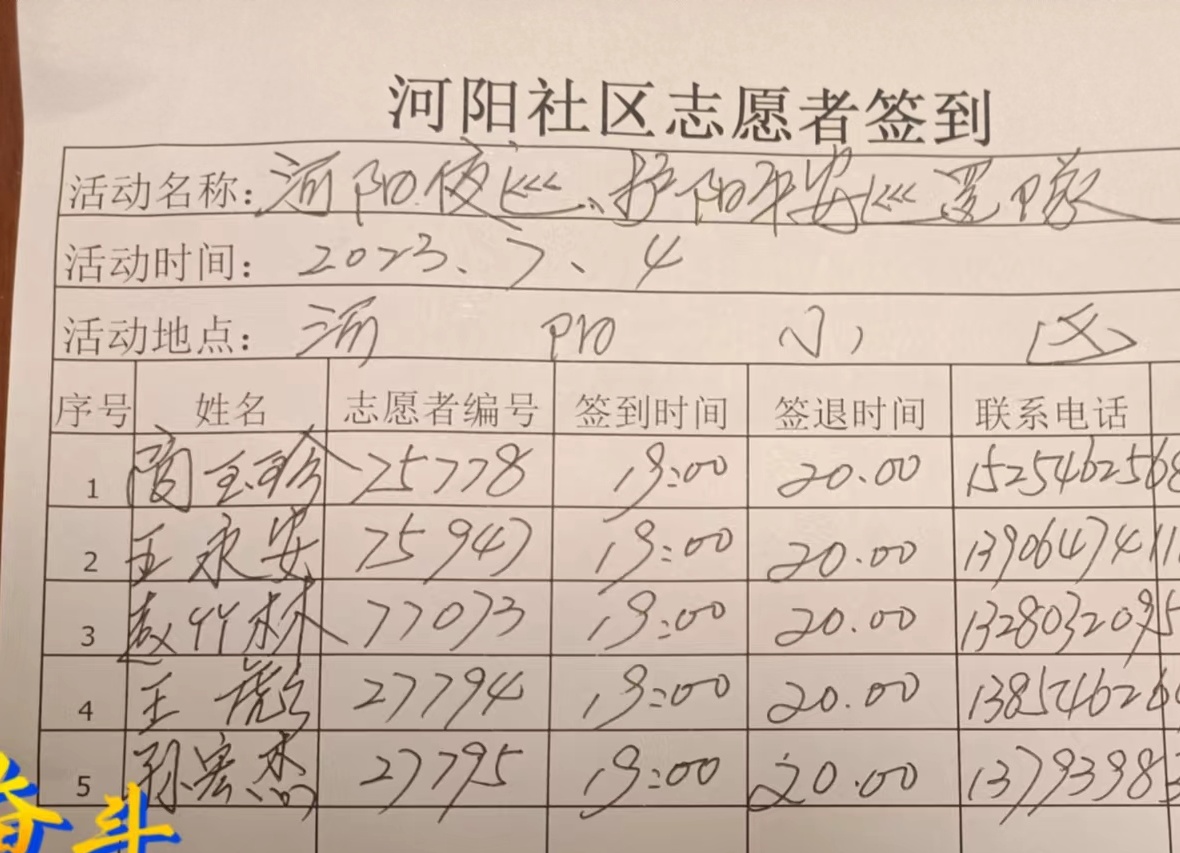 河阳社区志愿者签到
活动名称：河阳夜巡、护阳平安巡逻队
活动时间：2023、7、4
活动地点：河 阳 小 区
序号 姓名 志愿者编号 签到时间 签退时间 联系电话
1 玉珍 75778 19:00 20.00 1525462568
2 王永安 75947 19:00 20.00 139064741
3 赵竹林 77073 19:00 20.00 1328032095
4 王彪 27794 19:00 20.00 138546226
5 孙宏杰 27795 19:00 20.00 13793983
奋斗